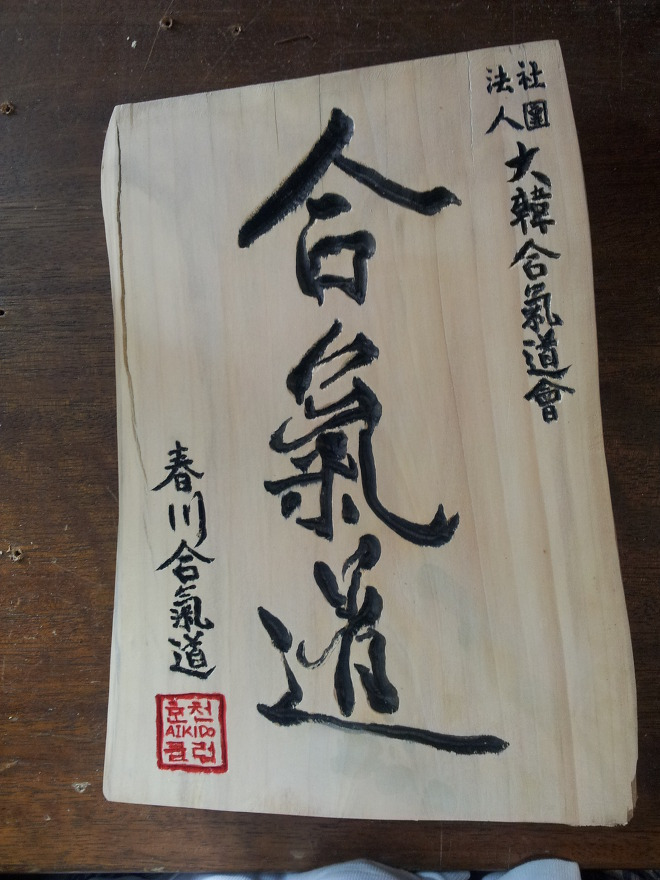 社團
法人
大韓合氣道會
合氣道
春川合氣道
춘천
AIKIDO
클럽